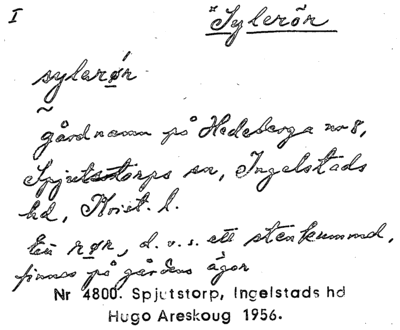 I
*Sylerör
sylerør
~
gårdnamn på Hedeberga nr 8,
Spjutstorps sn, Ingelstads
hd, Krist. l.
En rør, d. v. s. ett stenkummel,
finnes på gårdens ägor
Nr 4800. Spjutstorp, Ingelstads hd
Hugo Areskoug 1956.